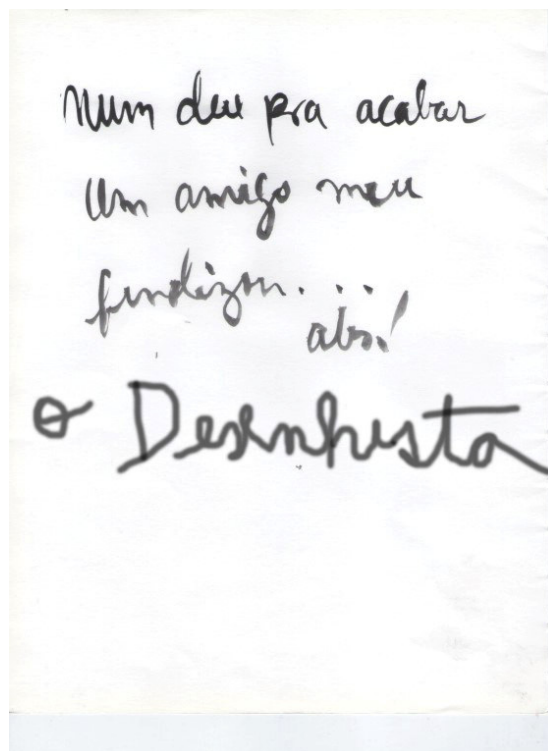 num deu pra acabar
um amigo meu
findizou...
abs!
o Desenhista